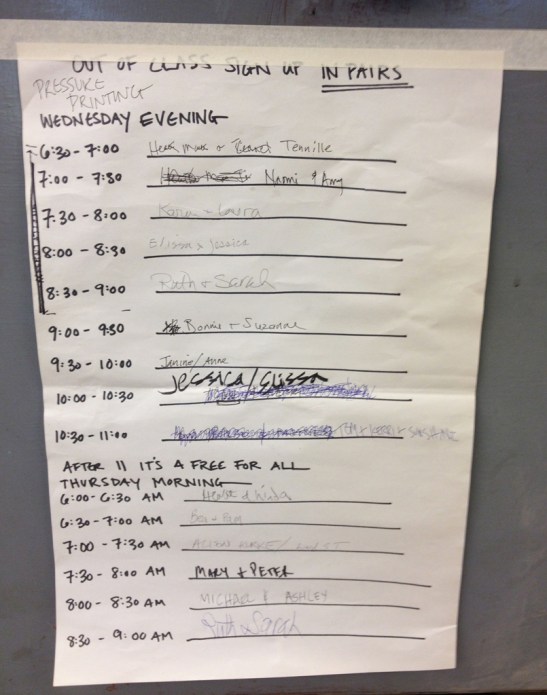 OUT OF CLASS SIGN UP IN PAIRS
PRESSURE
PRINTING
WEDNESDAY EVENING
6:30 - 7:00 Tennille
7:00 - 7:30 Naomi & Amy
7:30 - 8:00 Karen + Laura
8:00 - 8:30 Elissa & Jessica
8:30 - 9:00 Ruth + Sarah
9:00 - 9:30 Bonnie + Suzanne
9:30 - 10:00 Janine/Anne
10:00 - 10:30 Jessica/Elissa
10:30 - 11:00
AFTER 11 IT'S A FREE FOR ALL
THURSDAY MORNING
6:00 - 6:30 AM
6:30 - 7:00 AM
7:00 - 7:30 AM
7:30 - 8:00 AM MARY + PETER
8:00 - 8:30 AM MICHAEL & ASHLEY
8:30 - 9:00 AM Ruth & Sarah